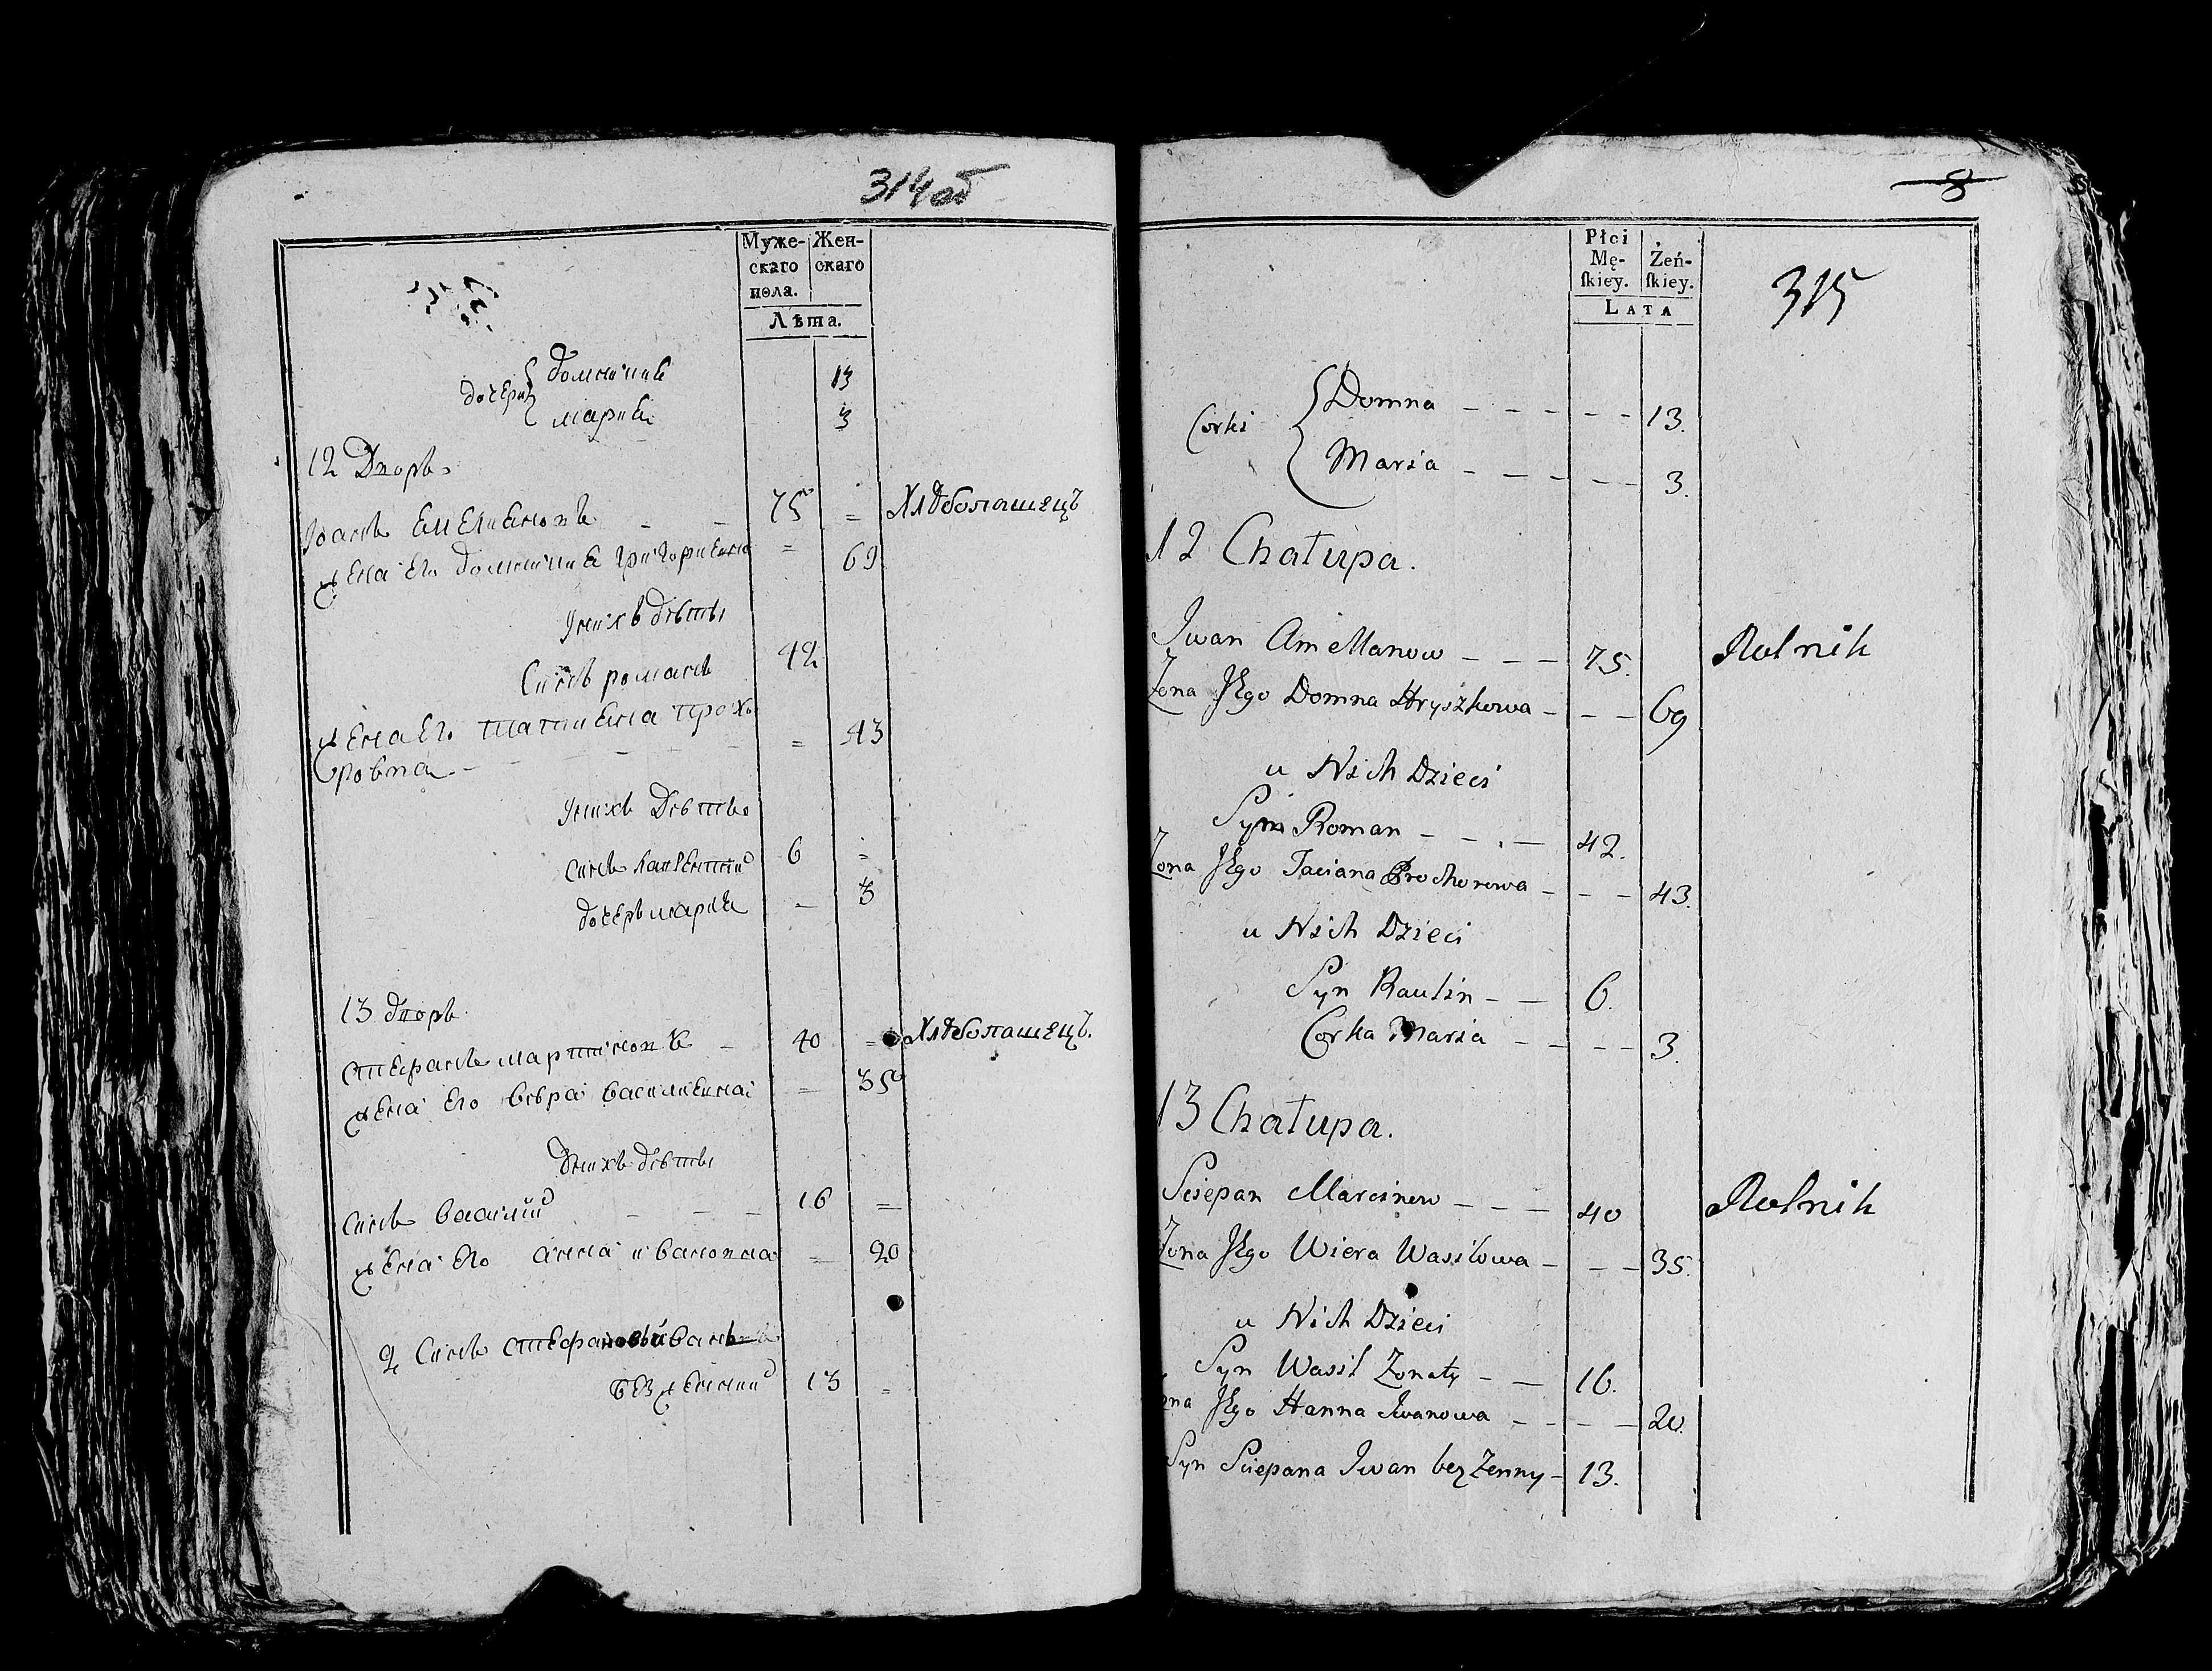 314 об
Муже-
скаго
пола.
Жен-
скаго
Лѣта.
дочери
домникѣ 13
мариѣ 3
12 Дворъ
Иоанъ Емелиеновъ - - 75 = Хлѣбопашецъ
жена его домникѣ григориевна = 69
у нихъ дѣти
Синъ романъ 42
жена его татиена прохо
ровна - - - - = 43
у нихъ Дѣти
синъ 6 =
дочерь мариѣ - 3
13 дворъ
стефанъ мартиновъ - 40 = Хлѣбопашецъ.
жена его вѣра василиевна = 35
у нихъ дѣти
синъ василий - - - 16 =
жена его анна ивановна - 20
2 Синъ стефановъ иванъ
безженний 13 =
8
315
Płci
Mę-
ſkiey.
Żeń-
ſkiey.
LATA
Corki
Domna - - - - - 13.
Maria - - - - - 3.
12 Chałupa.
Jwan Amellanow - - - 75. Rolnik
Zona Jego Domna Hryszkowa - - - 69
u Nich Dzieci
Syn Roman - - - 42.
Zona Jego Taciana Prochorowa - - - 43.
u Nich Dzieci
Syn Raulin - - 6.
Corka Maria - - - - 3.
13 Chałupa.
Sciepan Marcinow - - - 40 Rolnik
Zona Jego Wiera Wasilowa - - - 35.
u Nich Dzieci
Syn Wasil Zonaty - - 16.
ona Jego Hanna Jwanowa - - - - 20.
Syn Sciepana Jwan bezzenny - 13.